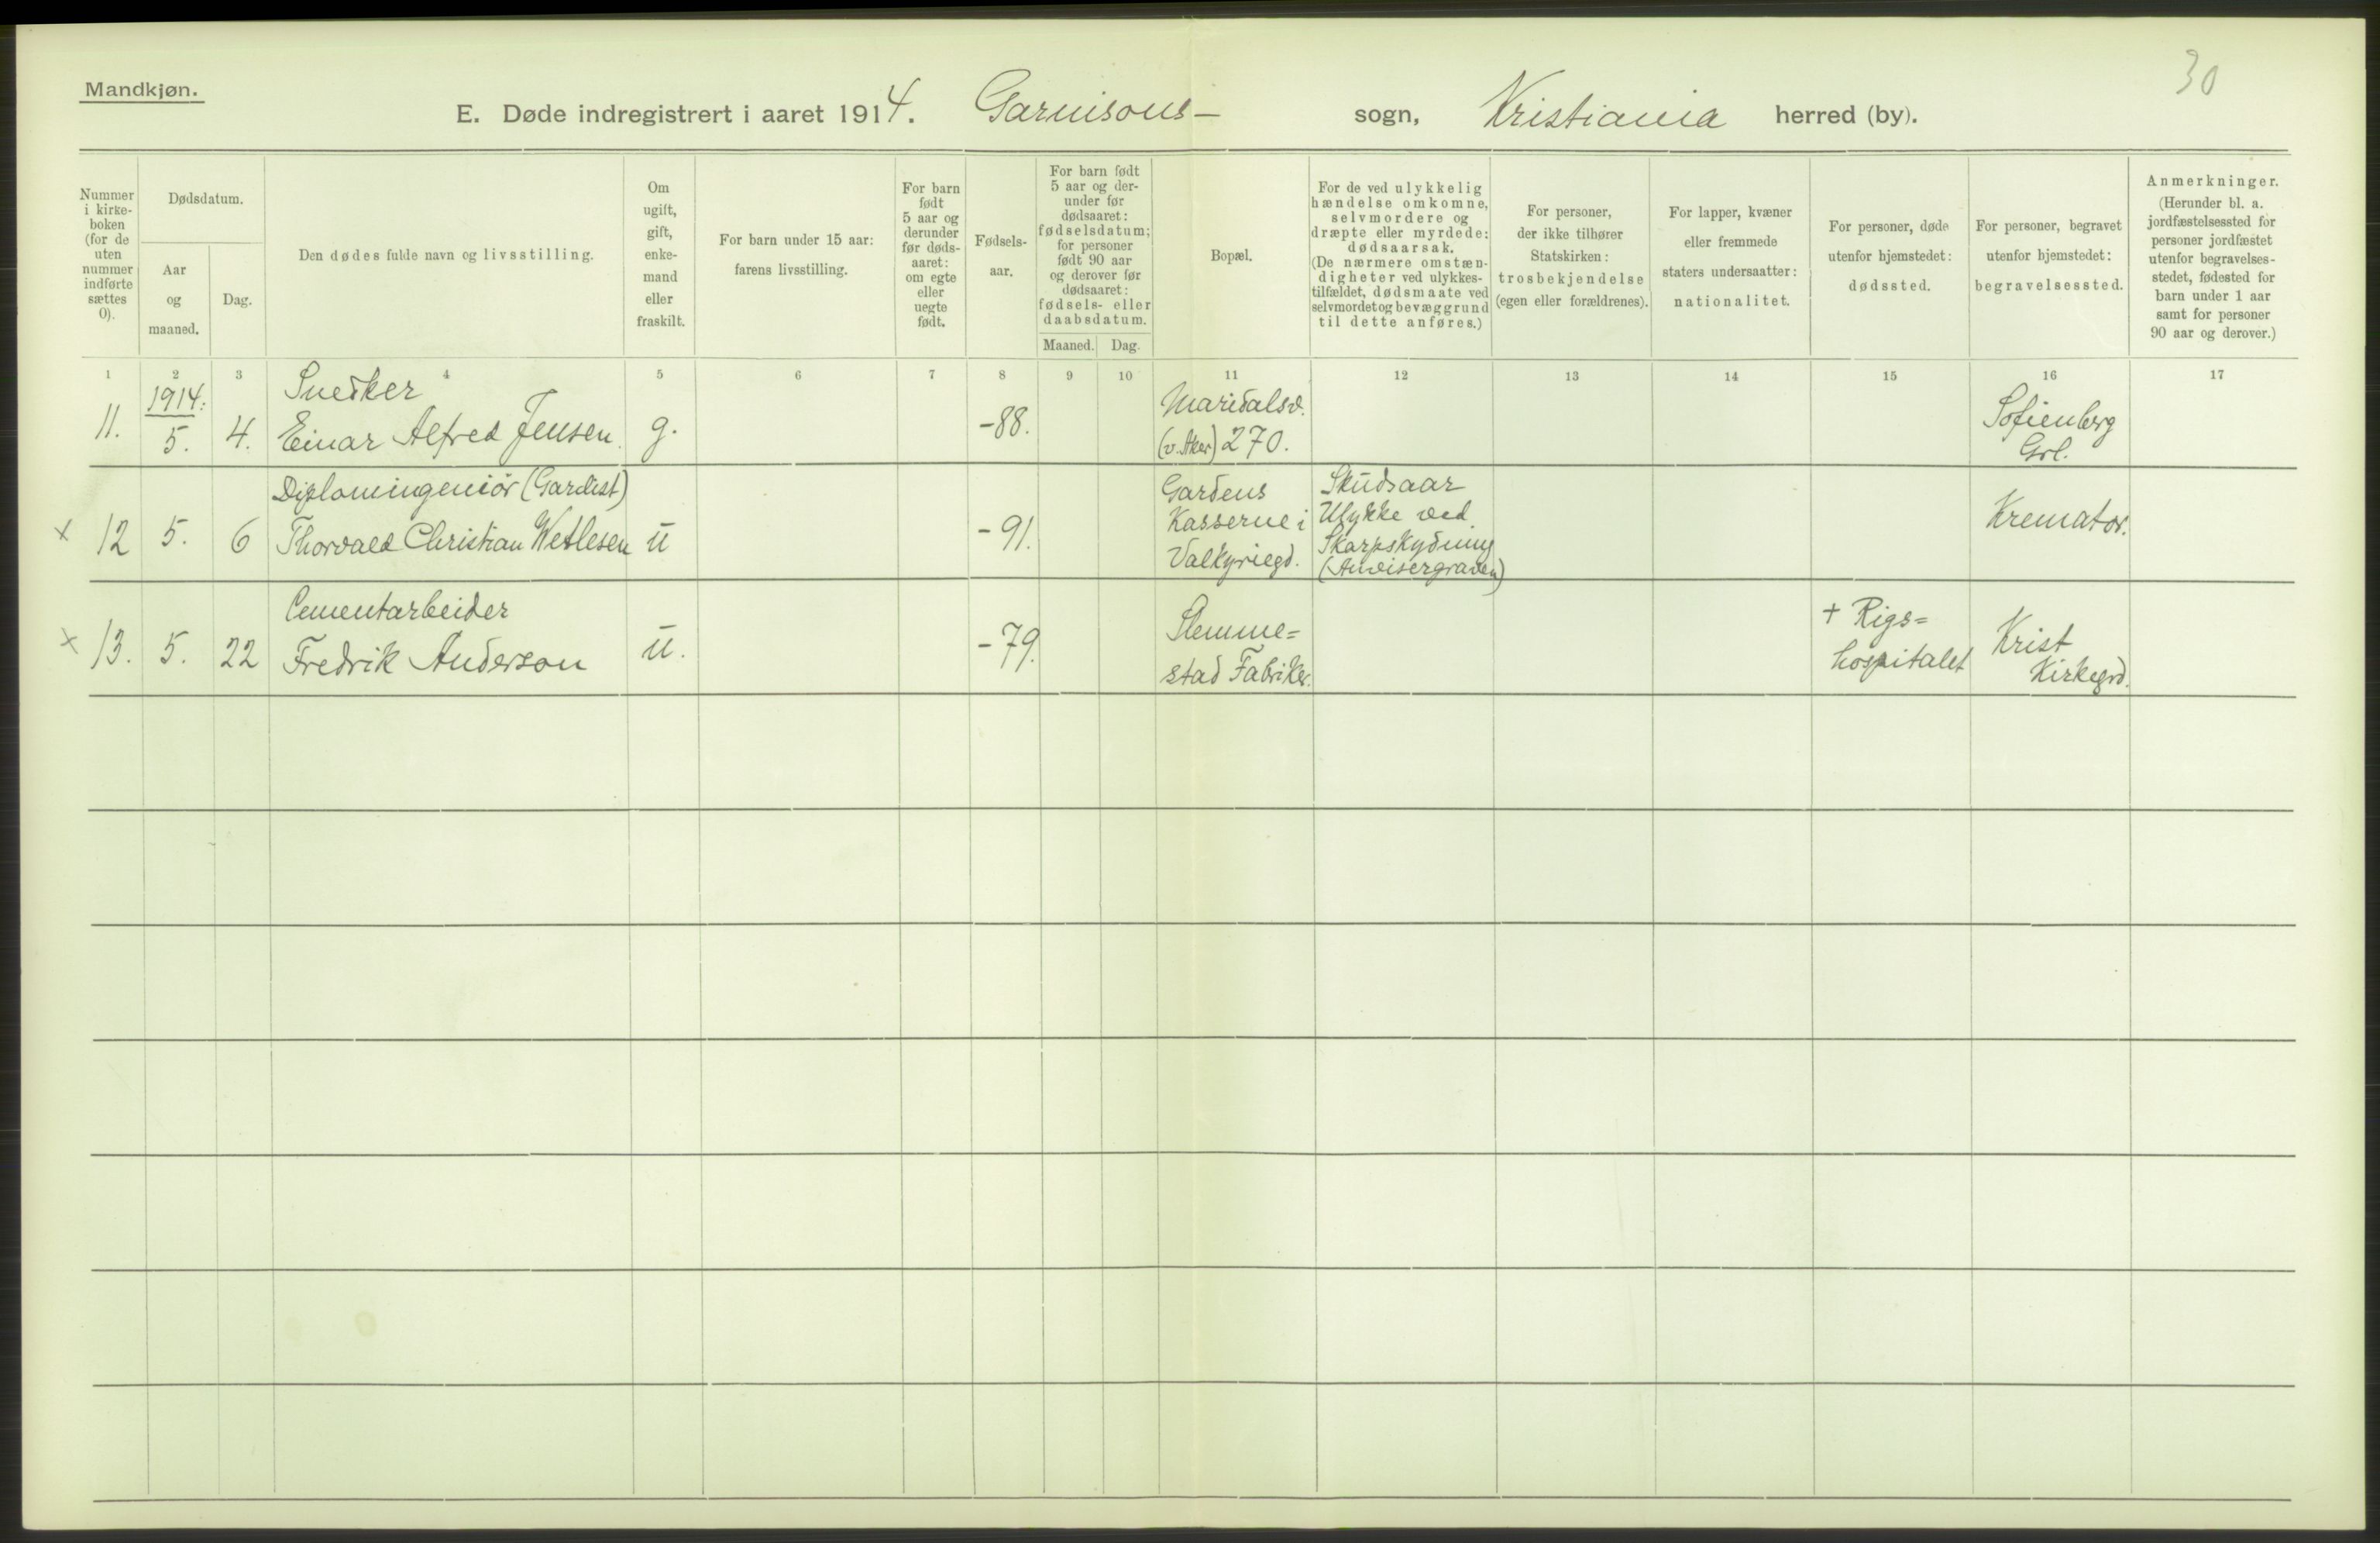 30
Mandkjøn.
E. Døde indregistrert i aaret 1914. Garnisons- sogn, Kristiania herred (by).
Nummer
i kirke-
boken
(for de
uten
nummer
indførte
sættes
0).
Dødsdatum.
Aar
og
maaned.
Dag.
Den dødes fulde navn og livsstilling.
Om
ugift,
gift,
enke-
mand
eller
fraskilt.
For barn under 15 aar:
farens livsstilling.
For barn
født
5 aar og
derunder
før døds-
aaret:
om egte
eller
uegte
født.
Fødsels-
aar.
For barn født
5 aar og der-
under før
dødsaaret:
fødselsdatum;
for personer
født 90 aar
og derover før
dødsaaret:
fødsels- eller
daabsdatum.
Maaned. Dag.
Bopæl.
For de ved ulykkelig
hændelse omkomne,
selvmordere og
dræpte eller myrdede:
dødsaarsak.
(De nærmere omstæn-
digheter ved ulykkes-
tilfældet, dødsmaate ved
selvmord og bevæggrund
til dette anføres.)
For personer,
der ikke tilhører
Statskirken:
trosbekjendelse
(egen eller forældrenes).
For lapper, kvæner
eller fremmede
staters undersaatter:
nationalitet.
For personer, døde
utenfor hjemstedet:
dødssted.
For personer, begravet
utenfor hjemstedet:
begravelsessted.
Anmerkninger.
(Herunder bl. a.
jordfæstelsessted for
personer jordfæstet
utenfor begravelses-
stedet, fødested for
barn under 1 aar
samt for personer
90 aar og derover.)
1 2 3 4 5 6 7 8 9 10 11 12 13 14 15 16 17
11.
1914:
5.
4.
Snedker
Einar Alfred Jensen.
g.
-88.
Maridalsv.
(v. Aker) 270.
Sofienberg
Grl.
x 12
5.
6
Diplomingeniør (Gardist)
Thorvald Christian Wetlesen
u
-91.
Gardens
Kasserne i
Valkyriegd.
Skudsaar
Ulykke ved
Skarpskydning
(Anvisergraven)
Kremator.
x 13.
5.
22
Cementarbeider
Fredrik Anderson
u.
-79.
Slemme=
stad Fabriker.
+ Rigs=
hospitalet
Krist
Kirkegrd.